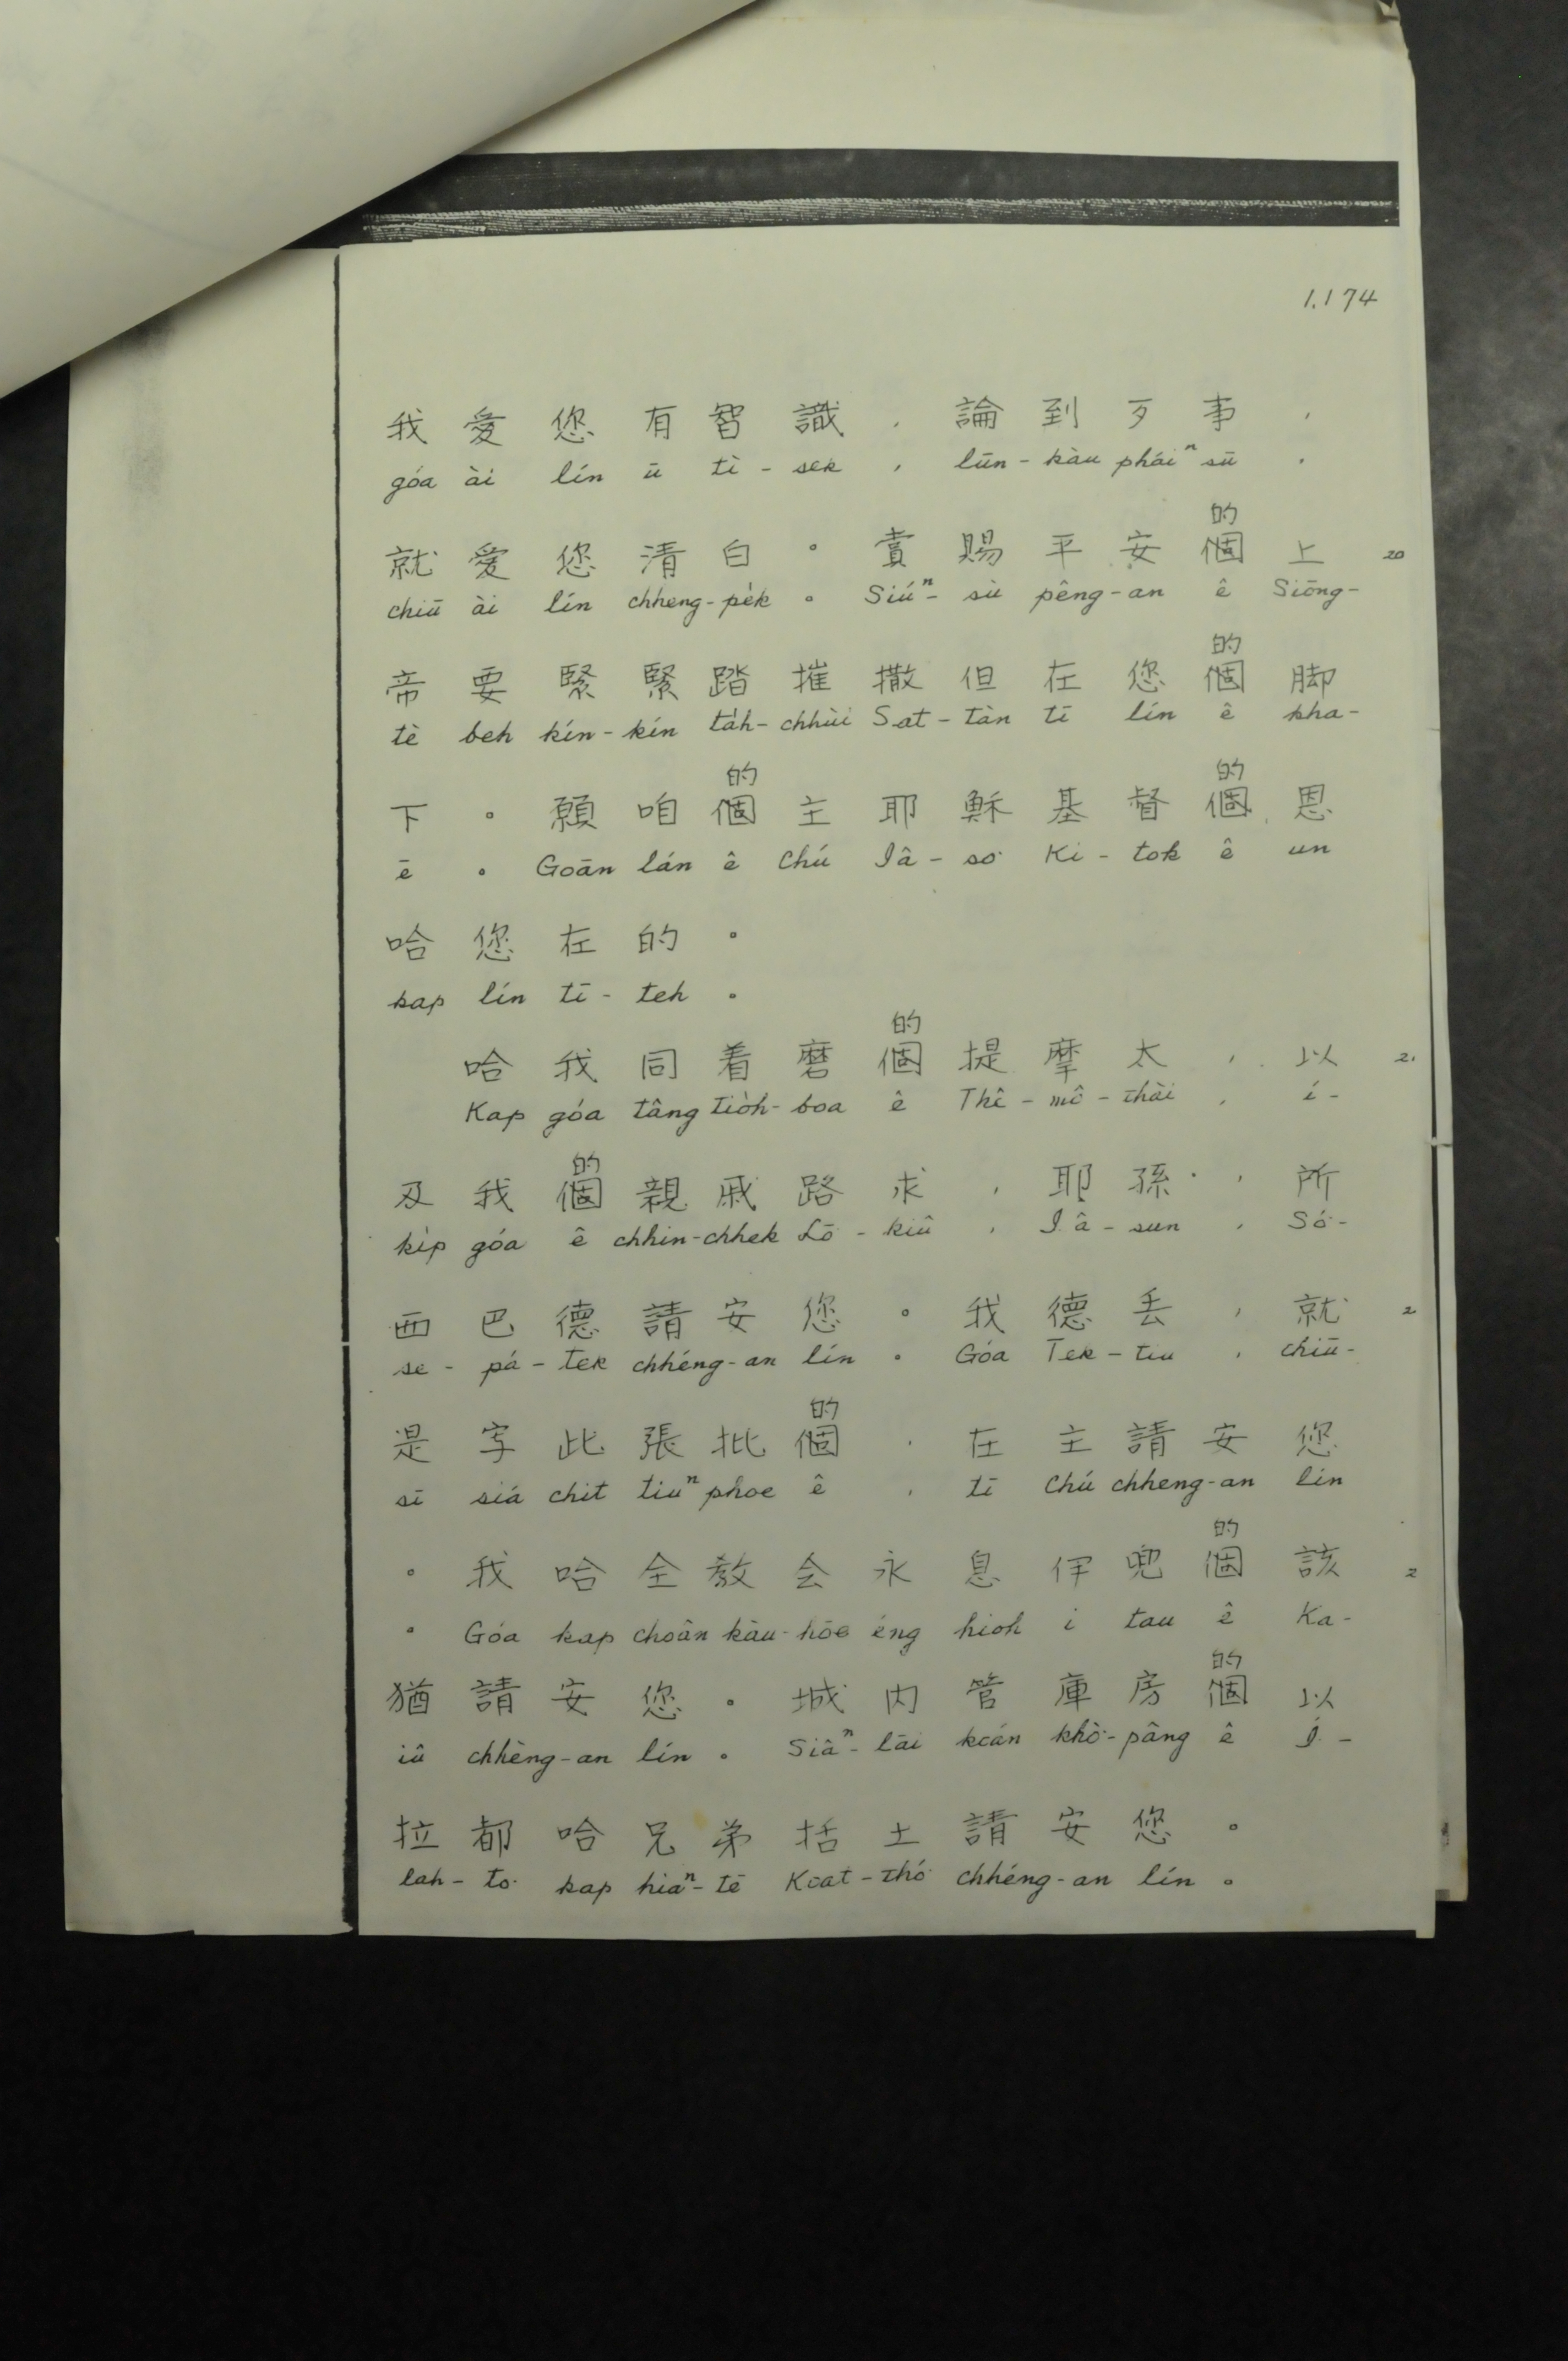 1.174
我愛您有智識，論到歹事，
góa ài lín ū tì-sek, lūn-kàu pháiⁿ sū,
的
就愛您清白。賞賜平安個上 20
chiū ài lín chheng-pe̍k。Siúⁿ-sù pêng-an ê Siōng-
的
帝要緊緊踏摧撒但在您個脚
tè beh kín-kín ta̍h-chhùi Sat-tàn tī lín ê kha-
的 的
下。願咱個主耶穌基督個恩
ē。Goān lán ê Chú Iâ-so͘ Ki-tok ê un
哈您在的。
kap lín tī-teh。
的
哈我同着磨個提摩太，以 21
Kap góa tâng tio̍h-boa ê Thê-mô-thài, í-
的
及我個親戚路求，耶孫，所
ki̍p góa ê chhin-chhek Lō-kiû, Iâ-sun, Só͘-
西巴德請安您。我德丢，就 2
se-pá-tek chhéng-an lín。Góa Tek-tiu, chiū-
的
是字此張批個，在主請安您
sī siá chit tiuⁿ phoe ê, tī Chú chheng-an lín
的
。我哈全教会永息伊兜個該 2
。Góa kap choân kàu-hōe éng hioh i tau ê Ka-
的
猶請安您。城内管庫房個以
iû chhèng-an lín。Siâⁿ-lāi koán khò͘-pâng ê Í-
拉都哈兄弟括土請安您。
lah-to͘ kap hiaⁿ-tē Koat-thó͘ chhéng-an lín。